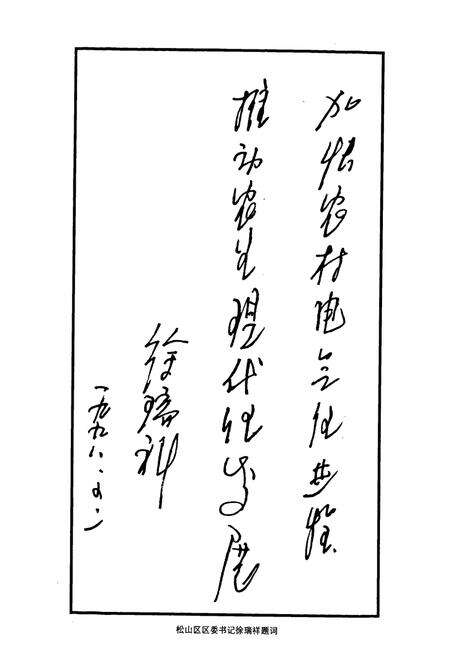 加快农村电气化步程
推动农业现代化发展
徐瑞祥
一九九八.五.二
松山区区委书记徐瑞祥题词